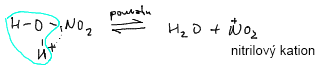 H-O-NO₂ ⇌ H₂O + ⁺NO₂
H⁺
nitrilový kation